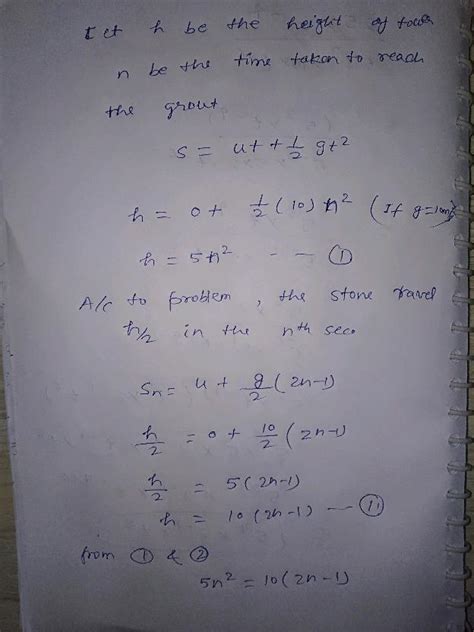 Let h be the height of tower
n be the time taken to reach
the grout
s = ut + 1/2 gt²
h = 0 + 1/2 (10) n² (If g=10m/s²)
h = 5n² -- ①
A/c to problem, the stone travel
h/2 in the nth sec.
Sn = u + g/2 (2n-1)
h/2 = 0 + 10/2 (2n-1)
h/2 = 5(2n-1)
h = 10(2n-1) -- ⑪
from ① & ②
5n² = 10(2n-1)